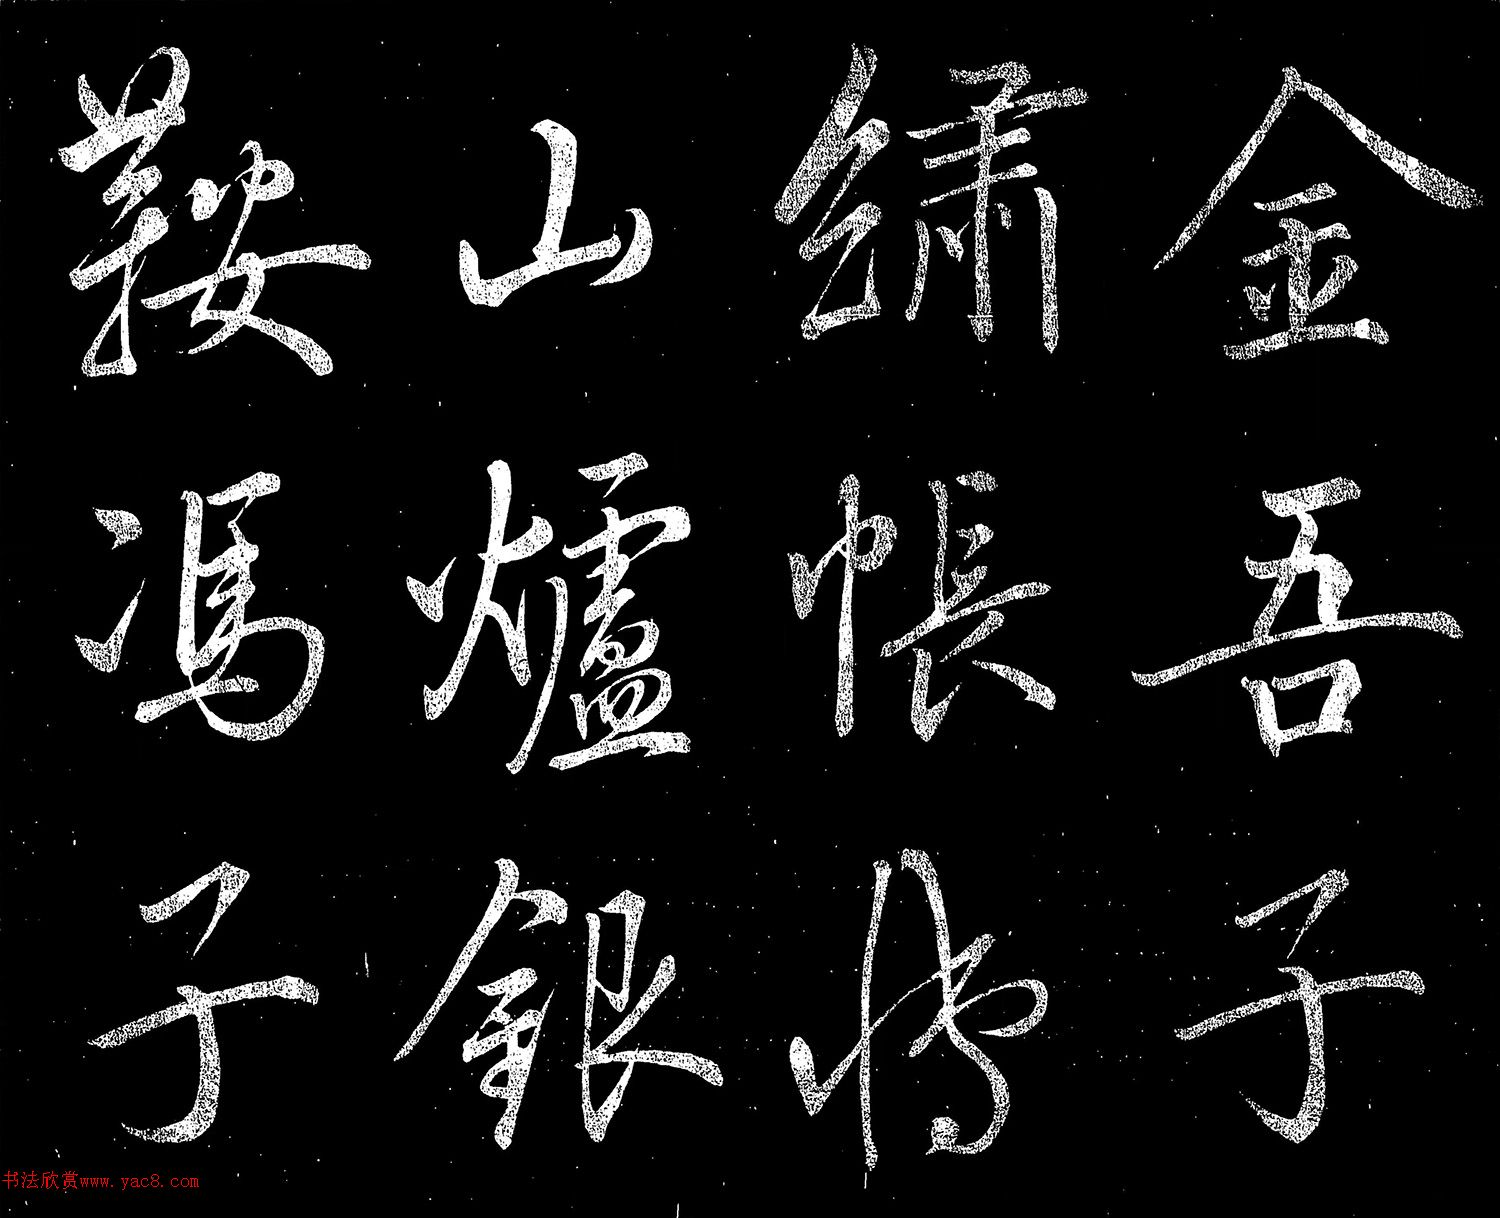 金吾子
繡帳博
山爐銀
鞍馮子
书法欣赏www.yac8.com